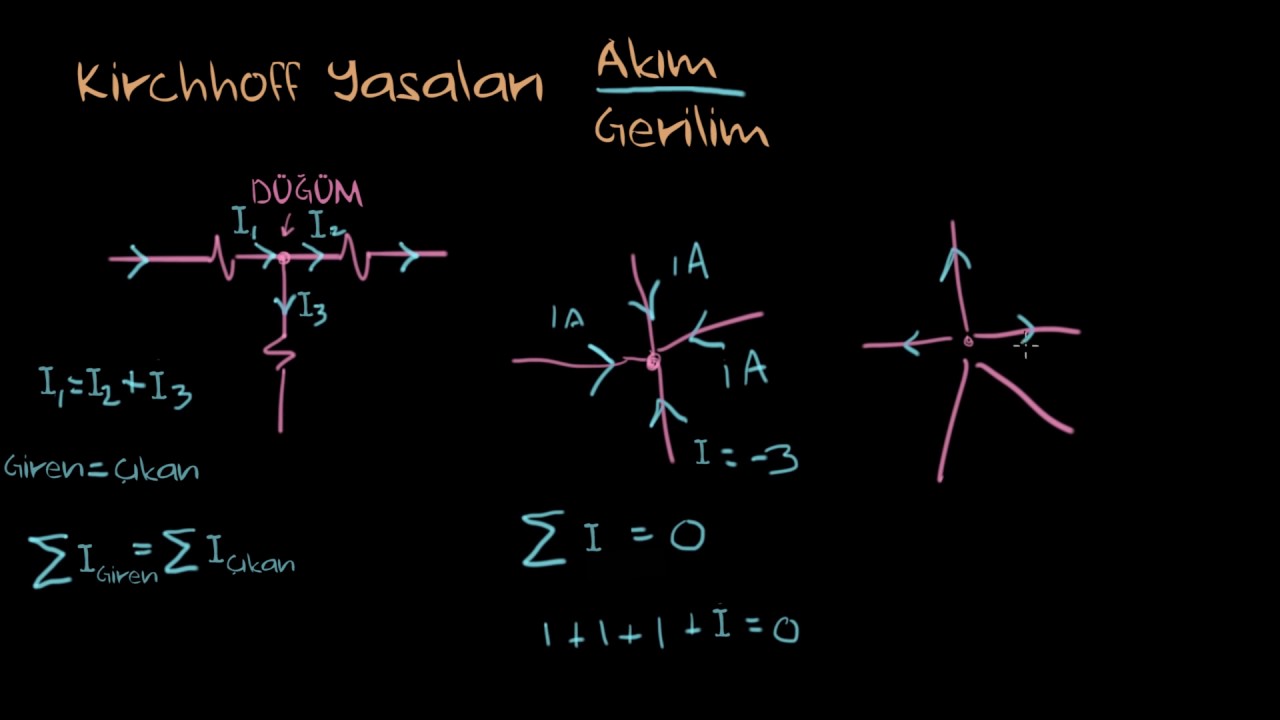 Kirchhoff Yasaları
Akım
Gerilim
DÜĞÜM
I₁ I₂
I₃
I₁=I₂+I₃
Giren=Çıkan
∑I Giren = ∑I Çıkan
1A
1A
1A
I=-3
∑ I = 0
1+1+1+I=0